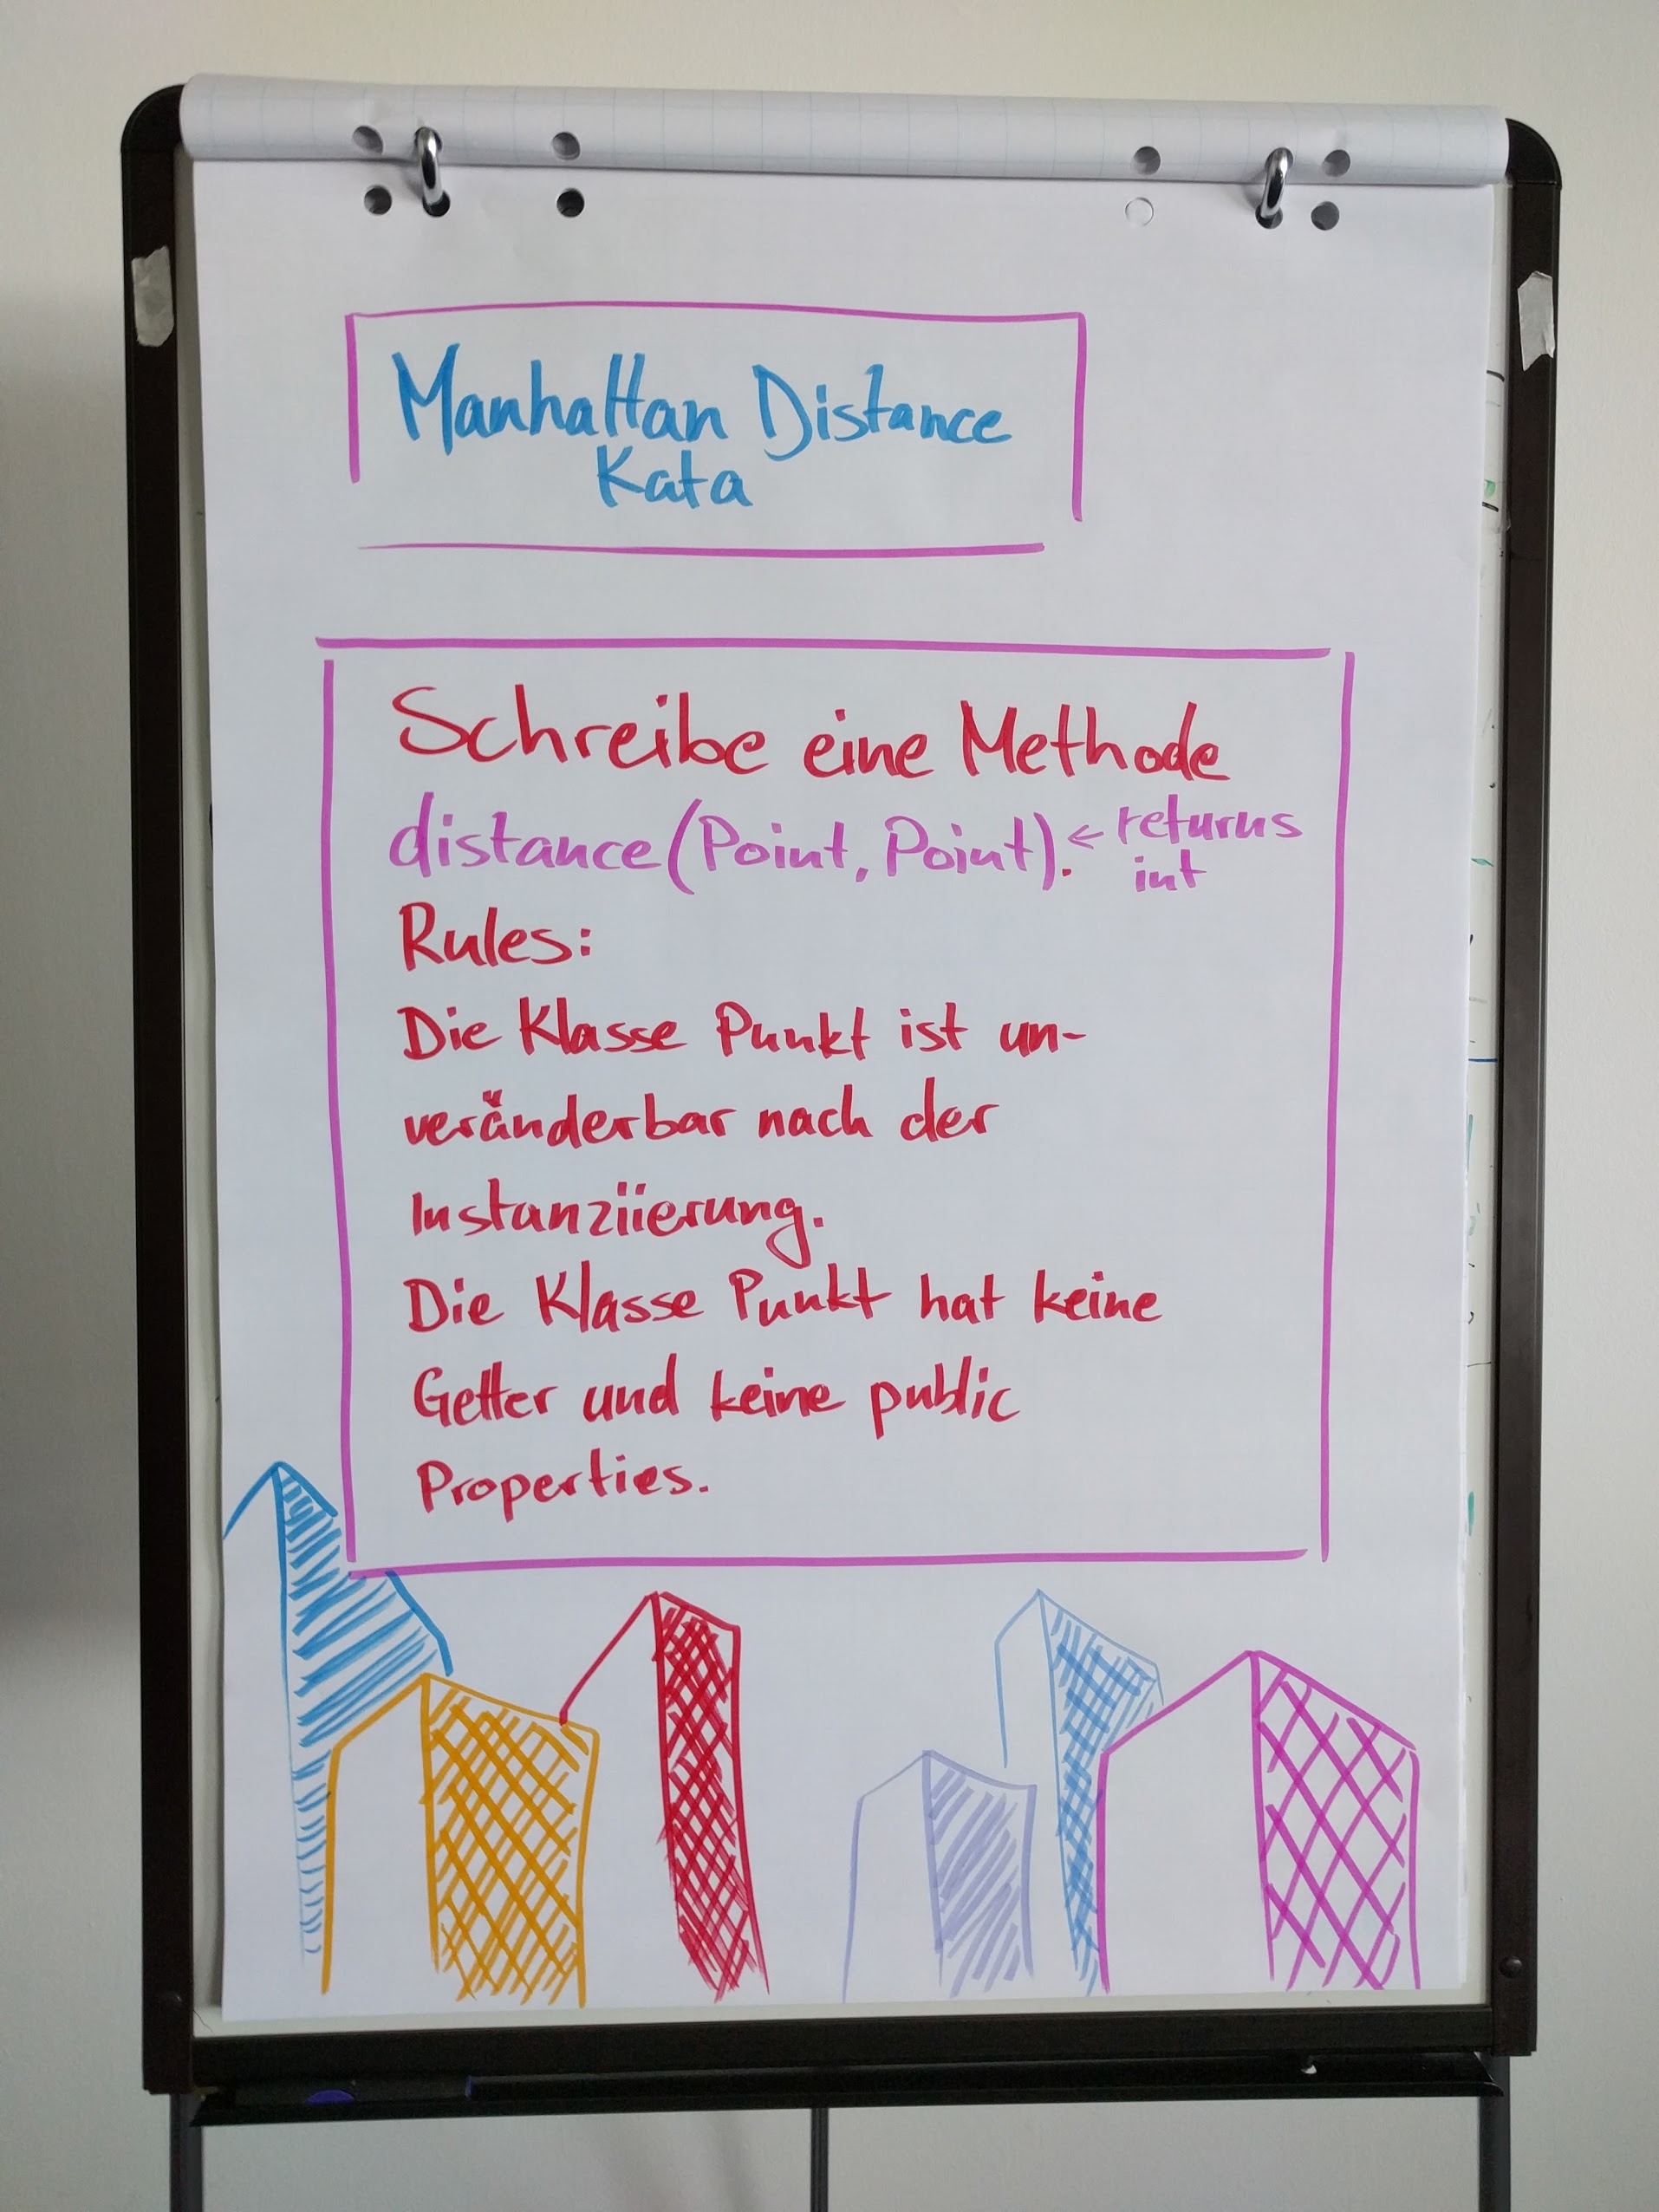 Manhattan Distance
Kata
Schreibe eine Methode
distance(Point, Point). ← returns
int
Rules:
Die Klasse Punkt ist un-
veränderbar nach der
Instanziierung.
Die Klasse Punkt hat keine
Getter und keine public
Properties.